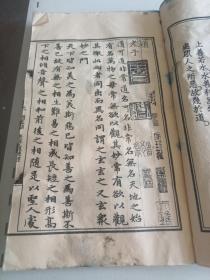 上善若水水善利萬
處衆人之所惡故幾於道
老子
道可道非常道名可名非常名無名天地之始
有名萬物之母常無欲以觀其妙常有欲以觀
其徼此兩者同出而異名同謂之玄玄之又玄衆
妙之門
天下皆知美之為美斯惡已皆知善之為善斯不
善已故有無之相生難易之相成長短之相形高
下之相傾音聲之相和前後之相隨是以聖人處